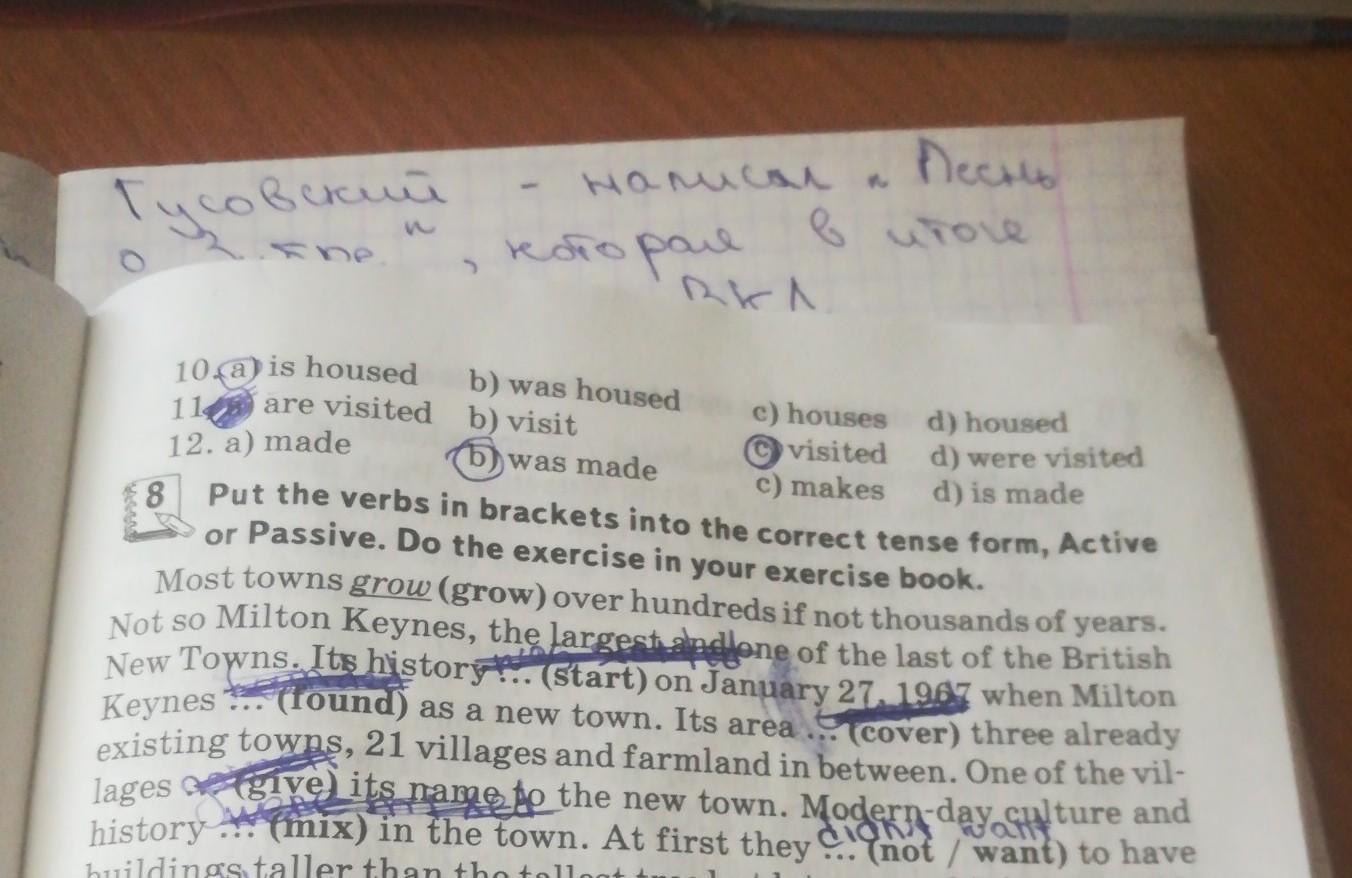 Гусовский - написал "Песнь
о ", которая в итоге
ВКЛ
10. a) is housed b) was housed c) houses d) housed
11. are visited b) visit c) visited d) were visited
12. a) made b) was made c) makes d) is made
8 Put the verbs in brackets into the correct tense form, Active
or Passive. Do the exercise in your exercise book.
Most towns grow (grow) over hundreds if not thousands of years.
Not so Milton Keynes, the largest and one of the last of the British
New Towns. Its history ... (start) on January 27, 1967 when Milton
Keynes ... (found) as a new town. Its area ... (cover) three already
existing towns, 21 villages and farmland in between. One of the vil-
lages (give) its name to the new town. Modern-day culture and
were mixed didn't want
history ... (mix) in the town. At first they ... (not / want) to have
buildings taller than the tallest